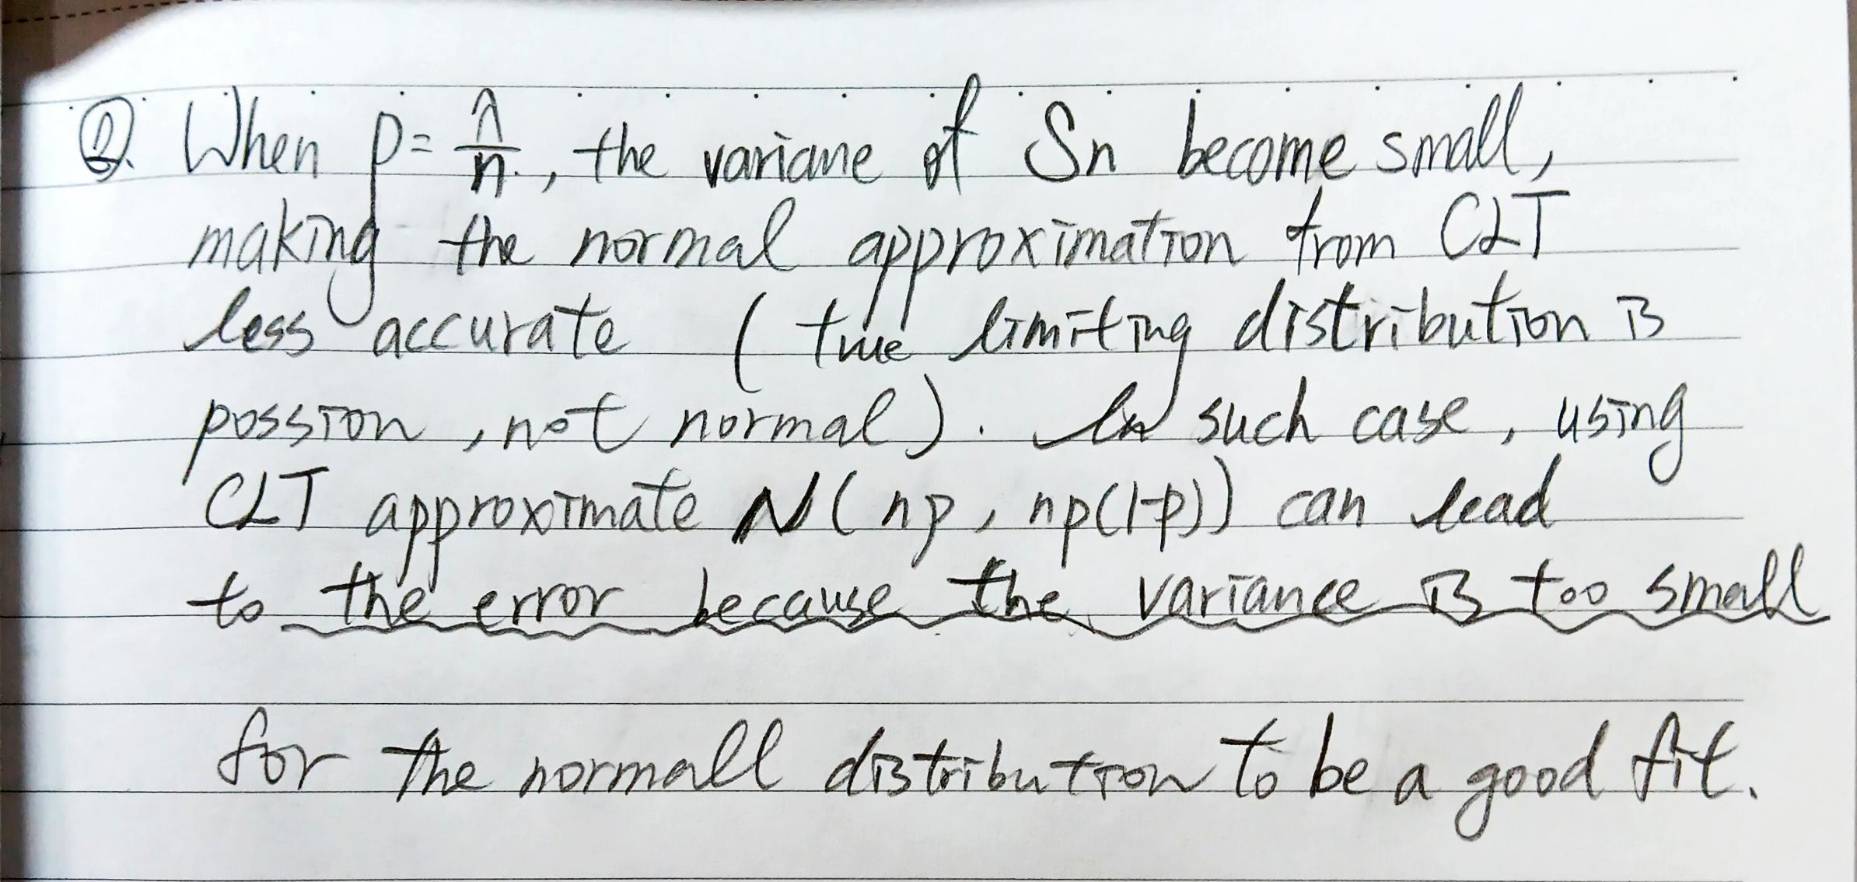 ②. When p = λ/n, the variane of Sn become small,
making the normal approximation from CLT
less accurate ( true limiting distribution is
possion, not normal). In such case, using
CLT approximate N(np, np(1-p)) can lead
to the error because the variance is too small
for the normall distribution to be a good fit.